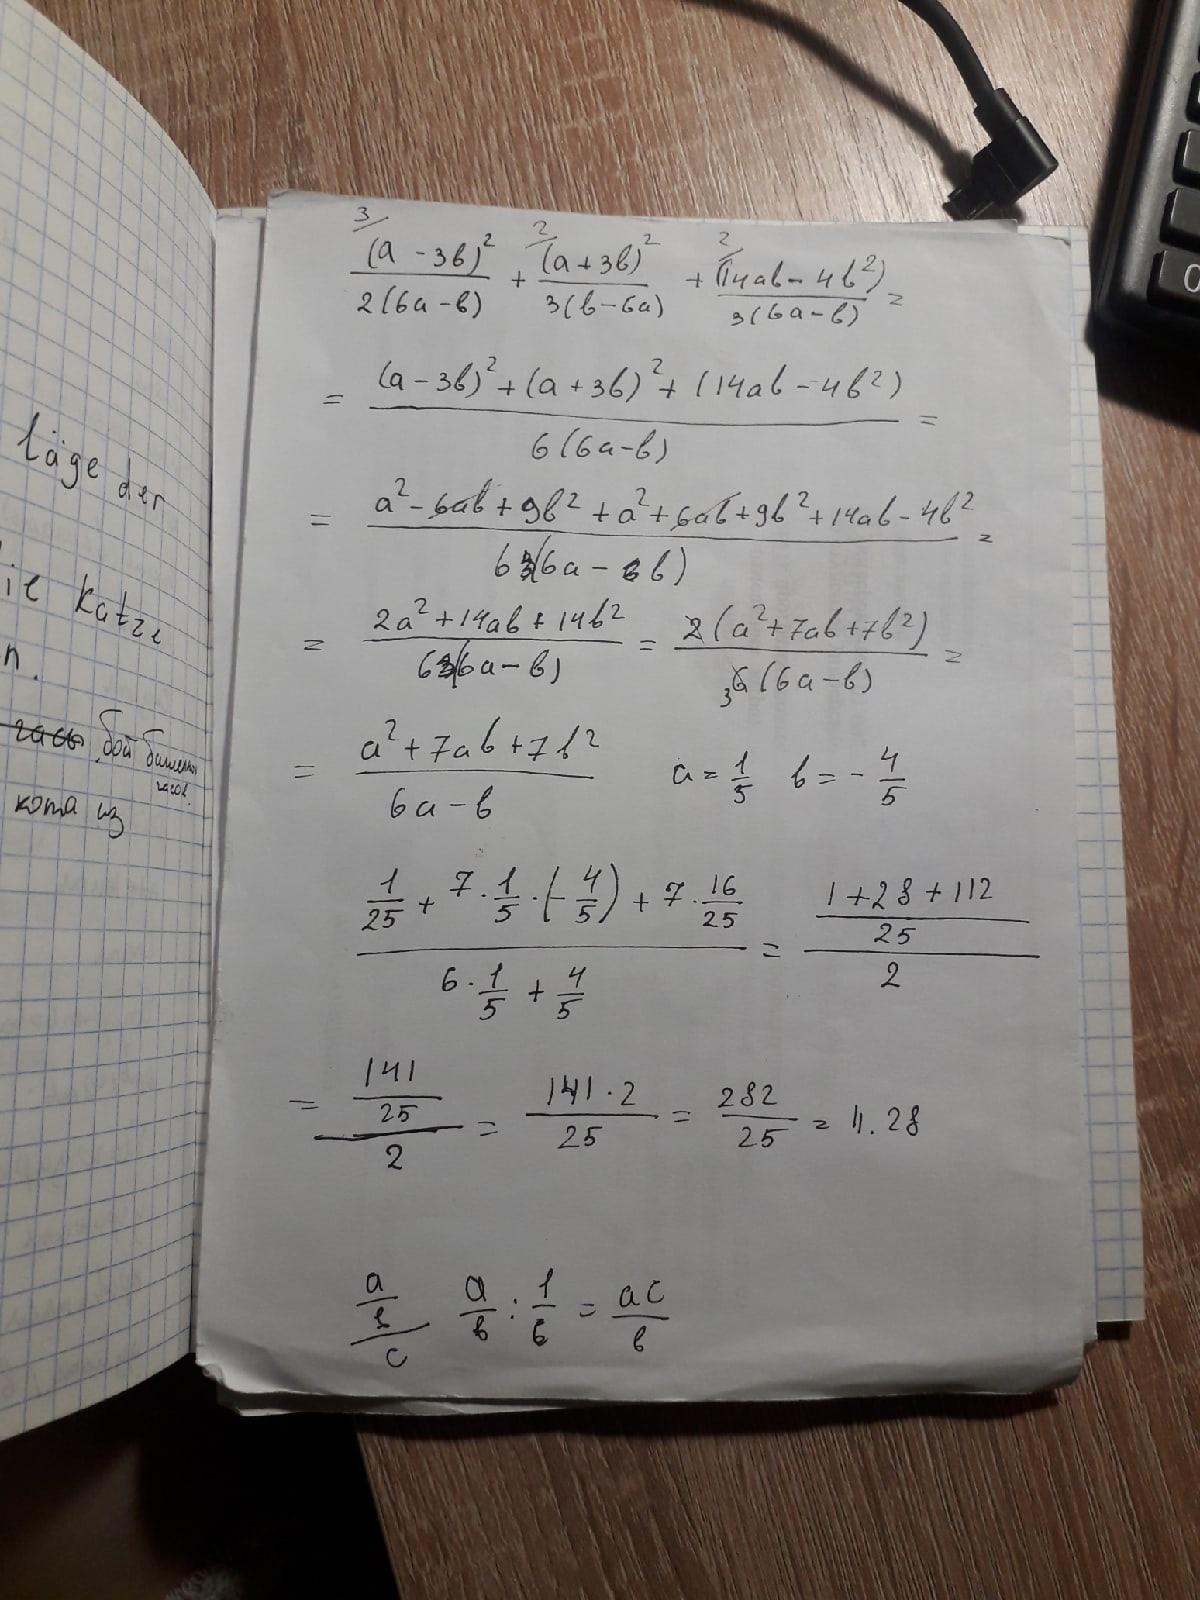 läge der
ie Katze
n.
часы бой башенных часов.
кота из
3/ (a - 3b)² / 2(6a - b) + 2/ (a + 3b)² / 3(b - 6a) + 2/ (14ab - 4b²) / 3(6a - b) =
= (a - 3b)² + (a + 3b)² + (14ab - 4b²) / 6(6a - b) =
= a² - 6ab + 9b² + a² + 6ab + 9b² + 14ab - 4b² / 6(6a - b) =
= 2a² + 14ab + 14b² / 6(6a - b) = 2(a² + 7ab + 7b²) / 3 6(6a - b) =
= a² + 7ab + 7b² / 6a - b a = 1/5 b = - 4/5
1/25 + 7 · 1/5 · (- 4/5) + 7 · 16/25 / 6 · 1/5 + 4/5 = 1 + 28 + 112 / 25 / 2
= 141/25 / 2 = 141 · 2 / 25 = 282 / 25 = 11.28
a/b / c a/b : 1/c = ac/b